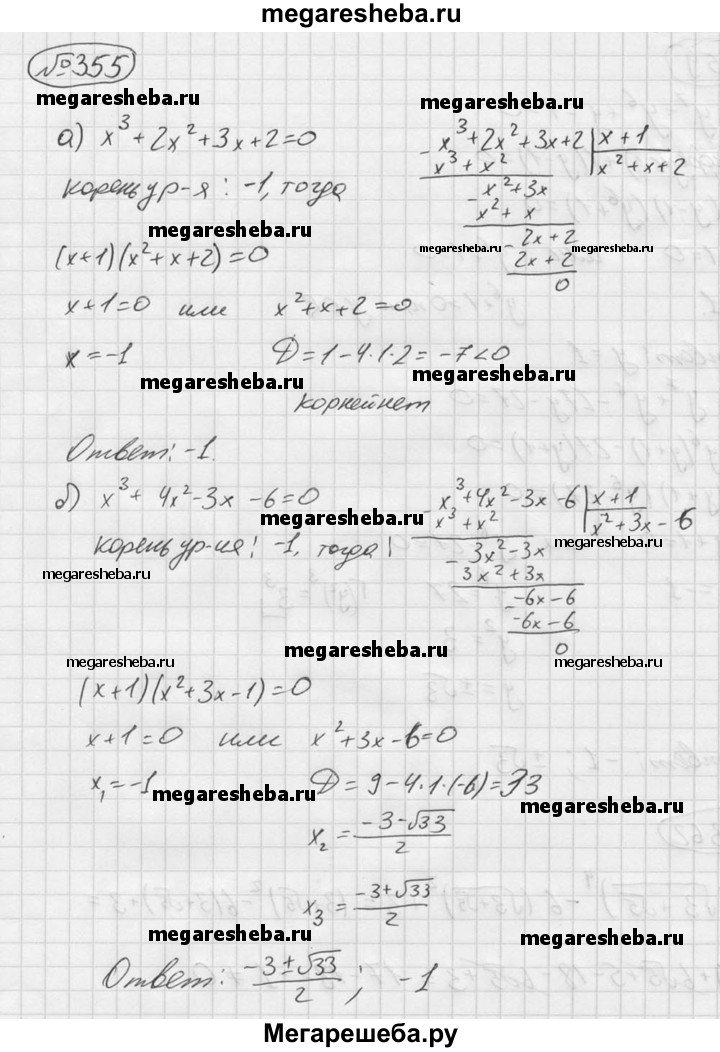 megaresheba.ru
№355
megaresheba.ru megaresheba.ru
а) x³+2x²+3x+2=0
x³+2x²+3x+2 | x+1
- x³+x² x²+x+2
корень ур-я: -1, тогда
x²+3x
- x²+x
megaresheba.ru megaresheba.ru
(x+1)(x²+x+2)=0
2x+2
- 2x+2
0
x+1=0 или x²+x+2=0
x=-1 Д=1-4·1·2=-7<0
megaresheba.ru megaresheba.ru
корней нет
Ответ: -1.
б) x³+4x²-3x-6=0
x³+4x²-3x-6 | x+1
- x³+x² x²+3x-6
megaresheba.ru megaresheba.ru
корень ур-ия: -1, тогда:
3x²-3x
- 3x²+3x
megaresheba.ru
-6x-6
- -6x-6
megaresheba.ru
0
megaresheba.ru megaresheba.ru
(x+1)(x²+3x-1)=0
x+1=0 или x²+3x-6=0
x₁=-1 Д=9-4·1·(-6)=33
megaresheba.ru megaresheba.ru
x₂=(-3-√33)/2
x₃=(-3+√33)/2
megaresheba.ru megaresheba.ru
Ответ: (-3±√33)/2; -1
Мегарешеба.ру